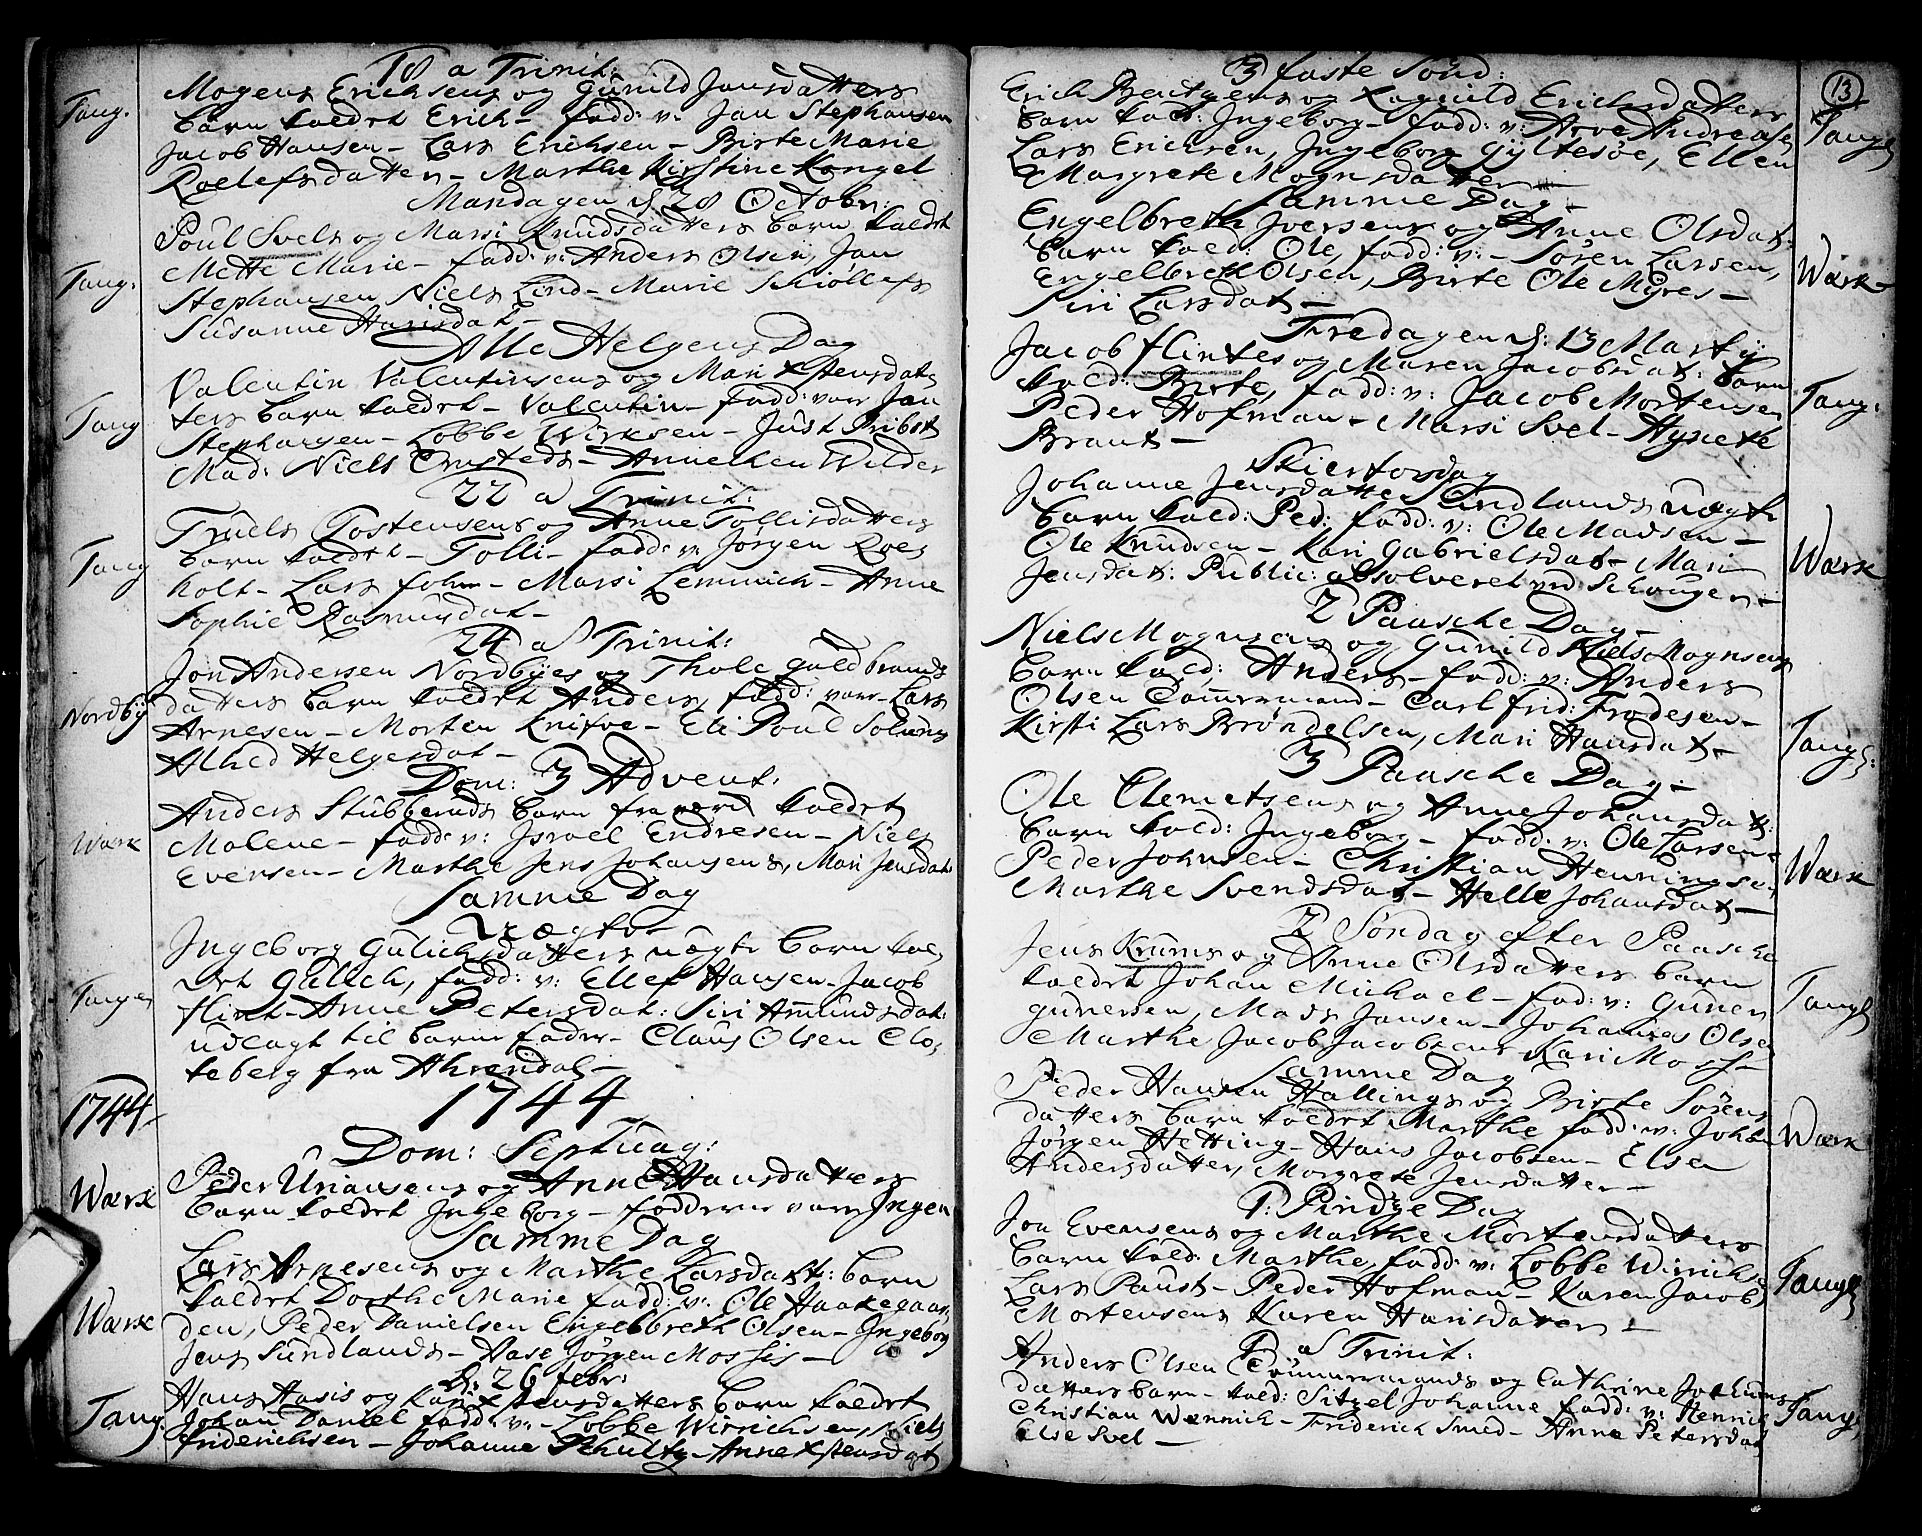 18 a Trinit:
Tang.
Mogens Erichsens og Gunild Jansdatters
barn kaldet Erich – fadd: v: Jan Stephansen
Jacob Hansen – Lars Erichsen – Birte Marie
Roelefsdatter – Marthe Kirstine Kongel
Mandagen d. 28 Octobr:
Tang:
Poul Svels og Marsi Knudsdatters barn kaldet
Mette Marie – fadd: v: Anders Olsen, Jan
Stephansen, Niels Lind – Marie Schiøllefs
Susanne Hansdat –
Alle Helgens Dag
Tang
Valentin Valentinsens og Mari Xstensdat,
ters barn kaldet – Valentin – fadd: var Jan
Stephansen – Lobbe Wirksen – Just Pribst
Mad: Niels Ernsteds – Annecken Wilder
22 a Trinit:
Tang
Truels Tostensens og Anne Tollisdatters
barn kaldet – Tolli – fadd: v: Jørgen Roes
holt – Lars fohn – Marsi Lemmich – Anne
Sophie Rasmusdat –
24 a Trinit:
Nordbÿ
Jon Andersen Nordbÿes og Thole Guldbrands
datters barn kaldet Anders, fadd: vare Lars
Arnesen – Morten Knifve – Eli Poul Solungs
Alhed Helgesdat –
Dom: 3 Advent:
Wærk
Anders Stubberuds barn fra kaldet
Malene – fadd: v: Israel Endresen – Niels
Evensen – Marthe Jens Johansens, Mari Jensdat:
Samme Dag
Uægte
Tangen
Ingeborg Gulichsdatters uægte barn kal,
det Gulich, fadd: v: Ellef Hansen – Jacob
flint – Anne Petersdat: Siri Amundsdat:
udlagt til barne fader – Claus Olsen Clo,
teberg fra Ahrendal –
1744
1744
Dom: Septuag:
Wærk
Peder Uriansens og Anne Hansdatters
barn kaldet Ingeborg – fadderne vare Ingen
Samme Dag
Wærk
Lars Arnesens og Marthe Larsdatt: barn
kaldet Dorthe Marie fadd: v: Ole Haakegaar,
den, Peder Danielsen Engelbreth Olsen – Ingeborg
Jens Sundlands – Aase Jørgen Mossis –
d: 26 febr:
Tang:
Hans Hasis og Kari Xstensdatters barn kaldet
Johan Daniel fadd: v: – Lobbe Wirrichsen, Niels
friderichsen – Johanne Schultz – Anne Xstensdat
13
3 faste Sønd:
Tangl
Erich Bentzens og Ragnild Erichsdatters
barn kald: Ingeborg – fadd: v: Arve Andreas,
Lars Erichsen, Ingeborg Gyltesøe, Ellen
Margrete Mognsdatter –
Samme Dag –
Wærk –
Engelbreth Iversens og Anne Olsdat:
barn kald: Ole, fadd: v: – Søren Larsen,
Engelbreth Olsen, Birte Ole Myres –
Siri Larsdat –
Fredagen d: 13 Martij
Tang:
Jacob flintes og Maren Jacobsdat: barn
kald: Birte, fadd: v: Jacob Mortensen
Peder Hofman – Marsi Svel –
Brant –
Skiertorsdag
Wærk
Johanne Jensdatter Sindlands uægte
barn kald: Ped: fadd: v: Ole Madsen –
Ole Knudsen – Kari Gabrielsdat – Mari
Jensdat: Public: absolveret ved Schougen –
2 Paasche Dag –
Tangl:
Niels Mognsens og Gunild Niels Mognsens
barn kald: Anders – fadd: v: Anders
Olsen Tømmermand – Carl frid: Frodesen –
Kirsti Lars Brøndelsen, Mari Hansdat –
3 Paasche Dag –
Wærk
Ole Clemetsens og Anne Johansdatt:
barn kald: Ingeborg – fadd: v: Ole Larsen –
Peder Johnsen – Christian Henningsen
Marthe Svendsdat – Helle Johansdat –
2 Søndag efter Paasche
Tangl
Jens Krums og Anne Olsdatters barn
kaldet Johan Michael – fad: v: Guner
gunersen, Mads Jansen – Johannes Olsen
Marthe Jacob Jacobsens Kari Moss –
Samme Dag
Wærk
Peder Hansen Hallings og Birte Sørens
datters barn kaldet Marthe fadd: v: Johan
Jørgen Hetting – Hans Jacobsen – Elsen
Andersdatter, Margrete Jensdatter –
1: Pindze Dag
Tangl
Jon Evensens og Marthe Mortensdatters
barn kald: Marthe, fadd: v: Lobbe Wirrichs,
Lars Paust – Peder Hofman – Karen Jacob
Mortensens Karen Hansdatter –
1 a Trinit:
Tang,
Anders Olsen Tømmermands og Cathrine Jochums
datters barn – kald: Sitzel Johanne fadd: v: Henrich
Christian Wennich – Friderich Smed – Anne Petersdat
Else Svel –